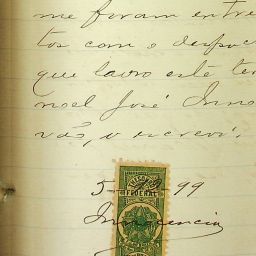 me foram entre
tos com o despac
que lavro este ter
noel José Inno
vão, o escrevi.
5 99
FEDERAL
Innocencio